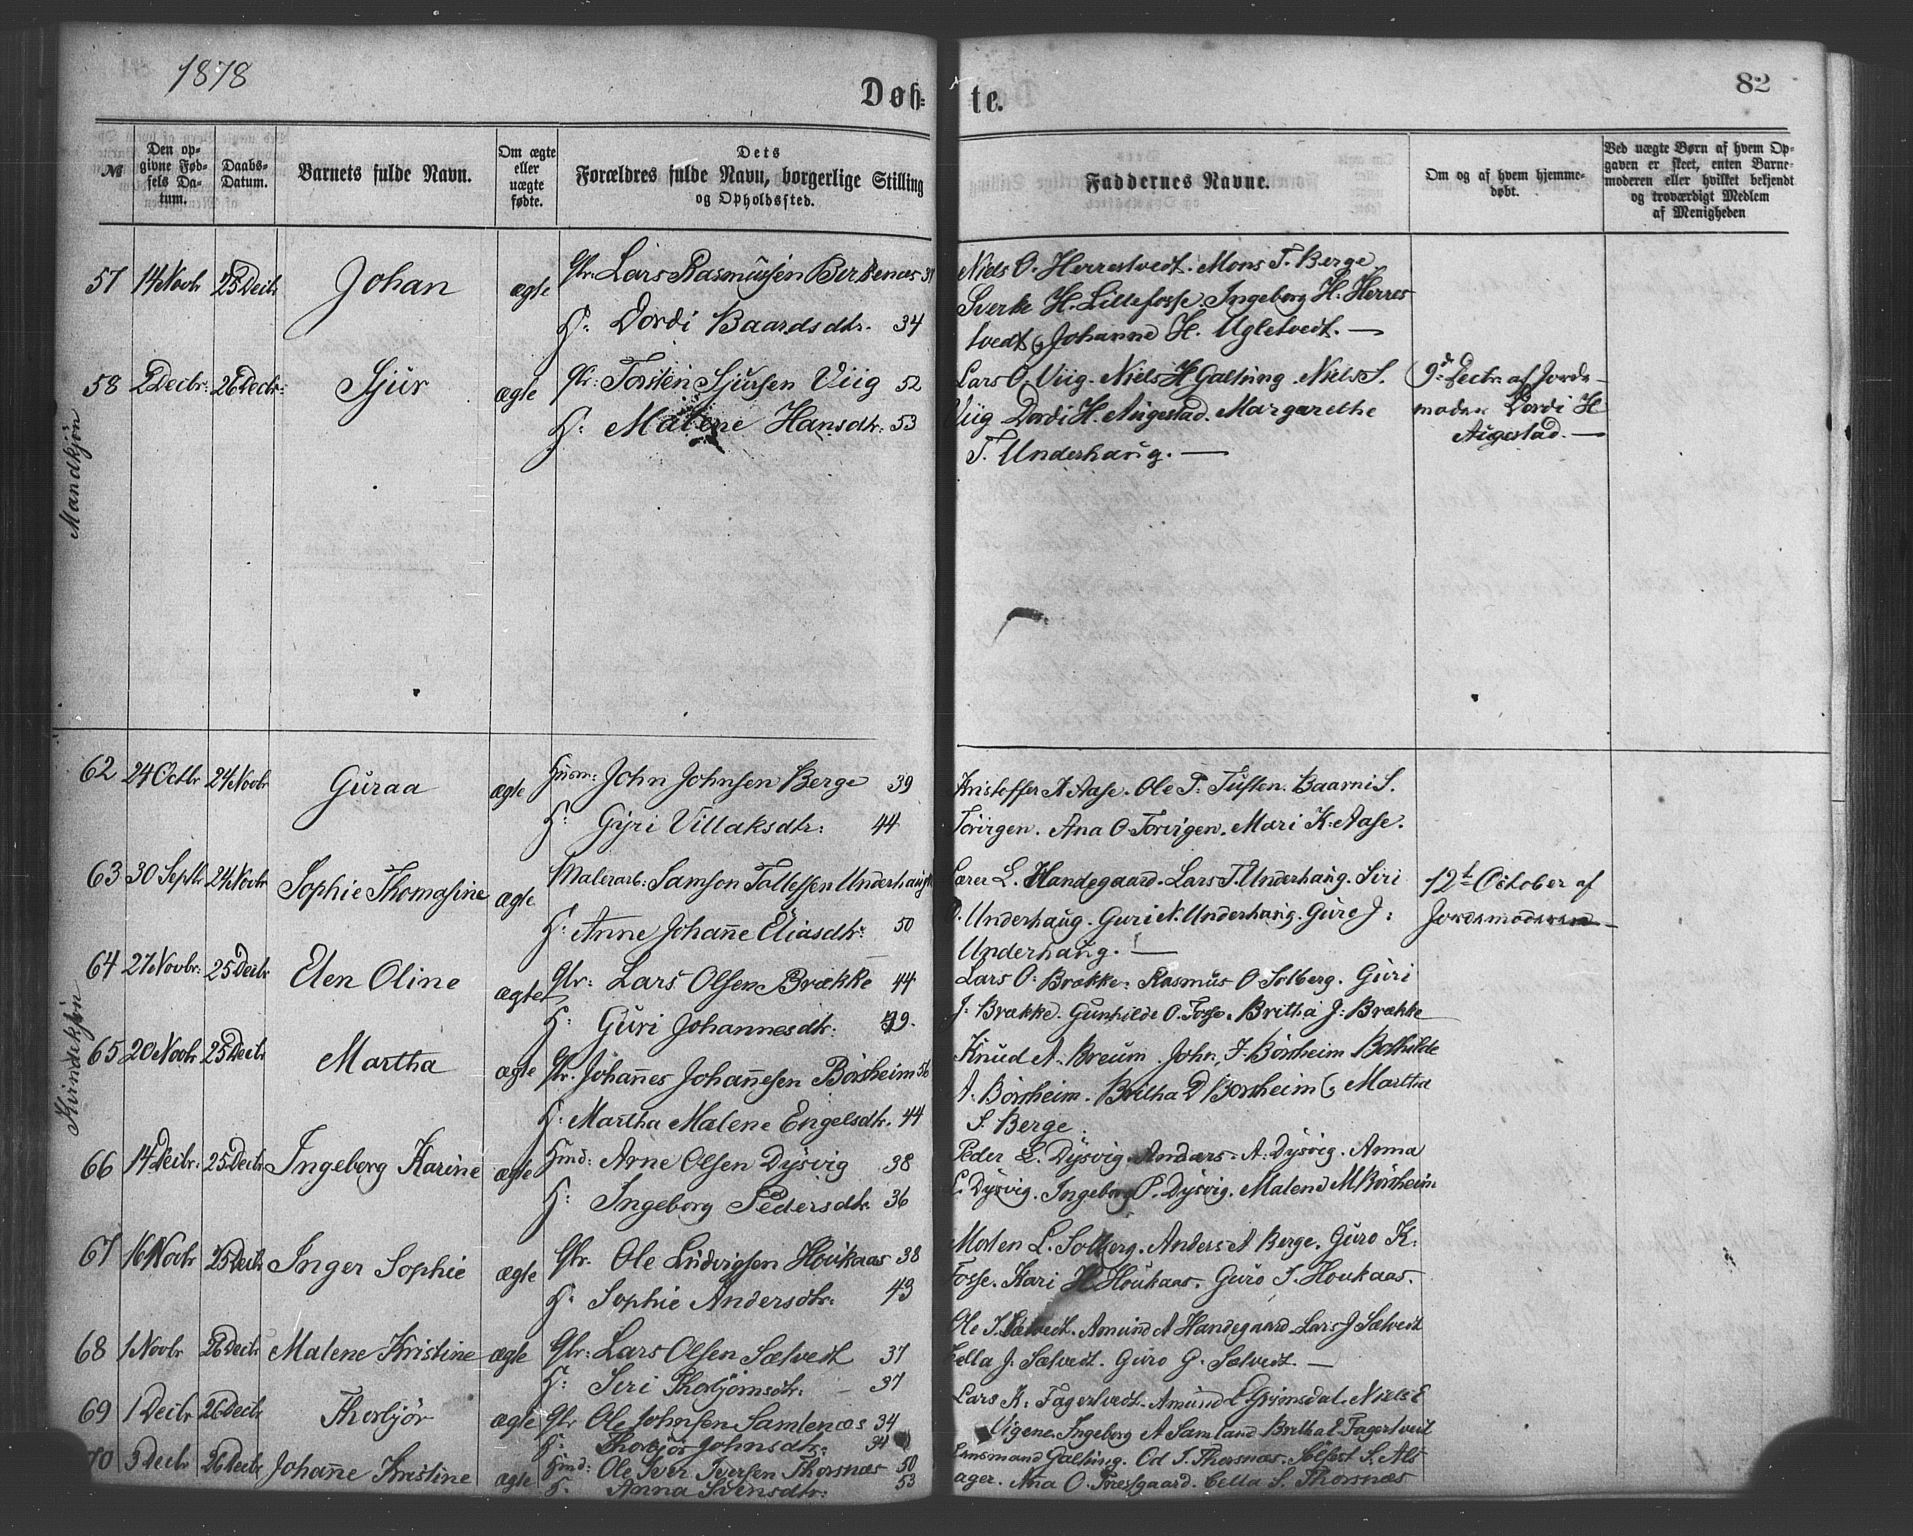 1878
Døb-te.
82
№
Den opgivne Fødsels Datum.
Daabs-Datum.
Barnets fulde Navn.
Om ægte eller uægte fødte.
Dets Forældres fulde Navn, borgerlige Stilling og Opholdssted.
Faddernes Navne.
Om og af hvem hjemmedøbt.
Ved uægte Børn af hvem Opgaven er skeet, enten Barnemoderen eller hvilket bekjendt og troværdigt Medlem af Menigheden
Mandkjøn
57 14 Novbr 25 Decbr Johan ægte Gbr: Lars Rasmussen Berkenæs
H: Dordi Baardsdtr. 34
Niels O. Herrestvedt. Mons T. Berge
Sverke H. Lillefosse. Ingeborg H. Herres
tvedt, Johanne H. Ugletvedt. —
58 2 Decbr: 26 Decbr: Sjur ægte Gbr: Torsten Sjursen Viig 52
H: Malene Hansdtr: 53
Lars O. Viig. Niels H Galtung. Niels S.
Viig Dordi H. Augestad. Margarethe
T. Underhaug. —
9de Decbr af Jorde-
moder Dordi H
Augestad. —
Kvindekjøn
62 24 Octbr 24 Novbr Guraa ægte Husm: John Johnsen Berge 39
H: Gyri Villaksdtr: 44
Kristoffer A Aase. Ole T. Tuften. Baarni S.
Torirgen. Ana O. Torirgen. Mari K. Aase.
63 30 Septbr 24 Novbr Sophie Thomasine ægte Malerarb: Samson Tollefsen Underhaug
H: Anne Johanne Eliasdtr: 50
Lærer L. Handegaard. Lars T. Underhaug. Siri
O. Underhaug. Guri N. Underhaug. Guro J:
Underhaug. —
12te October af
Jordemoderen —
64 27 Novbr: 25 Decbr Elen Oline ægte Gbr: Lars Olsen Brække 44
H: Guri Johannesdtr: 39.
Lars O: Brække. Rasmus O Solberg. Guri
J. Brække. Gunhilde O. Fosse. Britha J: Brække
65 20 Novbr 25 Decbr Martha ægte Gbr. Johannes Johannesen Børsheim 56
H: Martha Malene Engelsdtr. 44
Knud A. Breum. John J. Børsheim Bothilde
A. Børsheim. Britha D Børsheim, Martha
S. Berge.
66 14 Decbr. 25 Decbr Ingeborg Karine ægte Hmd: Arne Olsen Dysvig 38
H: Ingeborg Pedersdtr. 36
Peder L. Dysvig. Anders A. Dysvig. Anna
L. Dysvig. Ingeborg P. Dysvig. Malene M Børsheim
67 16 Novbr 25 Decbr Inger Sophie ægte Gbr. Ole Ludvigsen Houkaas 38
H. Sophie Andersdtr. 43
Morten L. Solberg. Anders A Berge. Guro K.
Fosse. Kari H Houkaas. Guro I. Houkaas.
68 1 Novbr 26 Decbr Malene Kristine ægte Gbr: Lars Olsen Sætvedt 37
H: Siri Thorbjørnsdtr. — 37
Ole I. Sætvedt. Amund A Handegaard. Lars J Sætvedt
Cella J. Sætvedt. Guro G. Sætvedt. —
69 1 Decbr 26 Decbr Thorbjør ægte Gbr Ole Johnsen Samlenæs 34
H: Thorbjør Johnsdtr. 34
Lars K. Fagertvedt. Amund L Grimsdal. Niels E
Vigene. Ingeborg A Samland Britha L. Fagertveit
70 3 Decbr 26 Decbr Johanne Kristine ægte Hmd: Ole Iver Iversen Thorsnæs 50
H. Anna Svensdtr: 53
Lensmand Galtung. Od I. Thorsnæs. Solfest S. Als
ager. Ana O. Tresgaard. Cella S. Thorsnæs